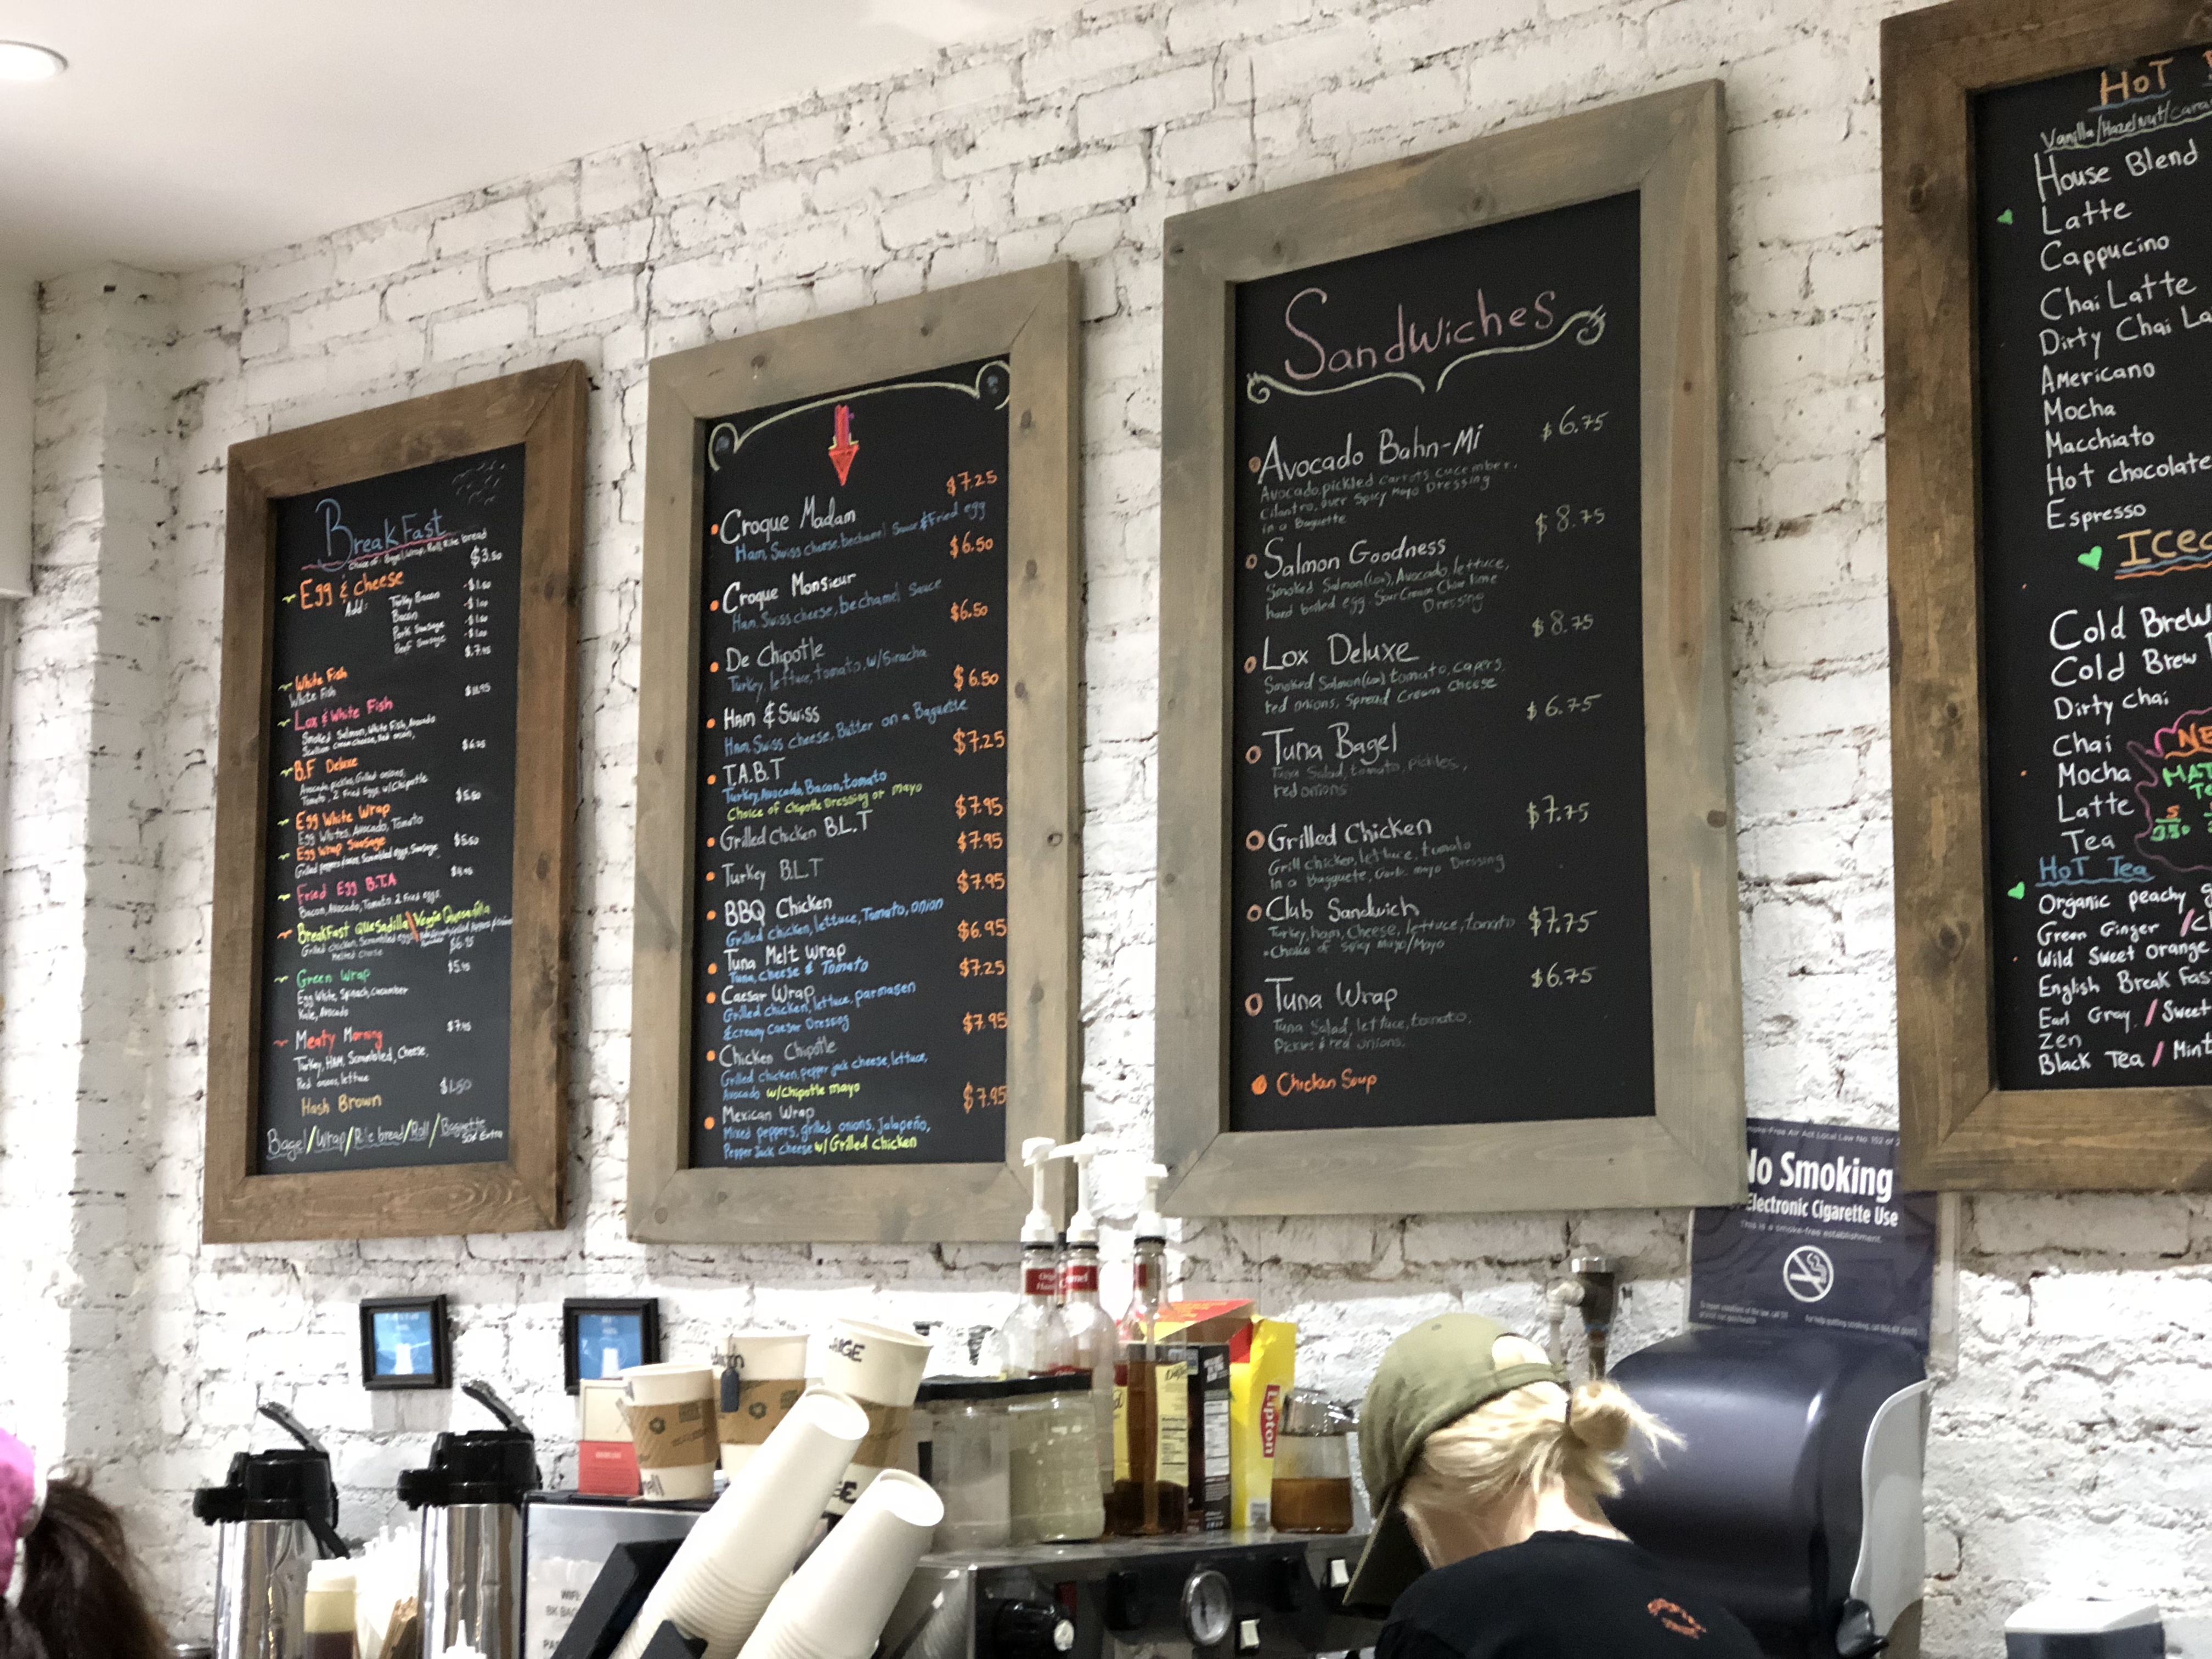 BreakFast
choice of: Bagel, Wrap, Roll, Rike bread
$3.50
Egg & cheese
Add: Turkey Bacon -$1.50
Bacon -$1.00
Pork Sausage -$1.00
Beef Sausage -$1.00
$7.95
White Fish
White Fish
$11.95
Lox & White Fish
Smoked Salmon, White Fish, Avocado
Scallion cream cheese, Red onion,
$6.25
B.F Deluxe
Avocado, pickles, Grilled onions,
Tomato, 2 Fried Eggs, w/Chipotle
$5.50
Egg White Wrap
Egg Whites, Avocado, Tomato
$5.50
Egg Wrap Sausage
Grilled peppers & onions, Scrambled eggs, Sausage
Fried Egg B.T.A
Bacon, Avocado, Tomato 2 Fried eggs
BreakFast Quesadilla\Veggie Quesadilla
Grilled chicken, Scrambled eggs
Melted Cheese
$6.95
Green Wrap $5.95
Egg White, Spinach, Cucumber
Kale, Avocado
Meaty Morning $7.95
Turkey, HAM, Scrambled, Cheese,
Red onion, lettuce
Hash Brown $1.50
Bagel/Wrap/Rike bread/Roll/Baguette
50¢ Extra
$7.25
Croque Madam
Ham, Swiss cheese, bechamel Sauce & Fried egg
$6.50
Croque Monsieur
Ham, Swiss cheese, bechamel Sauce
$6.50
De Chipotle
Turkey, lettuce, tomato, w/Siracha
$6.50
Ham & Swiss
Ham, Swiss cheese, Butter on a Baguette
$7.25
T.A.B.T
Turkey, Avocado, Bacon, tomato
Choice of Chipotle Dressing or mayo
Grilled Chicken B.L.T $7.95
Turkey B.L.T $7.95
BBQ Chicken $7.95
Grilled chicken, lettuce, Tomato, onion
Tuna Melt Wrap $6.95
Tuna, Cheese & Tomato
Caesar Wrap $7.25
Grilled chicken, lettuce, parmasen
& creamy Caesar Dressing
Chicken Chipotle $7.95
Grilled chicken, pepper jack cheese, lettuce,
Avocado w/Chipotle mayo
Mexican Wrap $7.95
Mixed peppers, grilled onions, Jalapeño,
Pepper Jack cheese w/ Grilled Chicken
Sandwiches
Avocado Bahn-Mi $6.75
Avocado, pickled carrots, cucember,
Cilantro, over Spicy Mayo Dressing
in a Baguette
Salmon Goodness $8.75
Smoked Salmon(Lox), Avocado, lettuce,
hard boiled egg. Sour Cream Chive lime
Dressing
Lox Deluxe $8.75
Smoked Salmon(Lox) tomato, capers,
red onions, Spread Cream Cheese
Tuna Bagel $6.75
Tuna Salad, tomato, pickles,
red onions
Grilled Chicken $7.75
Grill chicken, lettuce, tomato
In a Bagguete, Garlic mayo Dressing
Club Sandwich $7.75
Turkey, ham, Cheese, lettuce, tomato
-Choice of Spicy Mayo/Mayo
Tuna Wrap $6.75
Tuna Salad, lettuce, tomato,
Pickles & red onions.
Chicken Soup
HoT
Vanilla/Hazelnut/Cara
House Blend
Latte
Cappucino
Chai Latte
Dirty Chai La
Americano
Mocha
Macchiato
Hot chocolate
Espresso
Iced
Cold Brew
Cold Brew
Dirty chai
Chai
Mocha
Latte
Tea
NE
MAT
HoT Tea
Organic peachy
Green Ginger /
Wild Sweet Orange
English Break Fast
Earl Gray / Sweet
Zen
Black Tea / Mint
Smoke-Free Air Act Local Law No. 152 of 2
No Smoking
Electronic Cigarette Use
This is a smoke-free establishment.
Lipton
WIFI